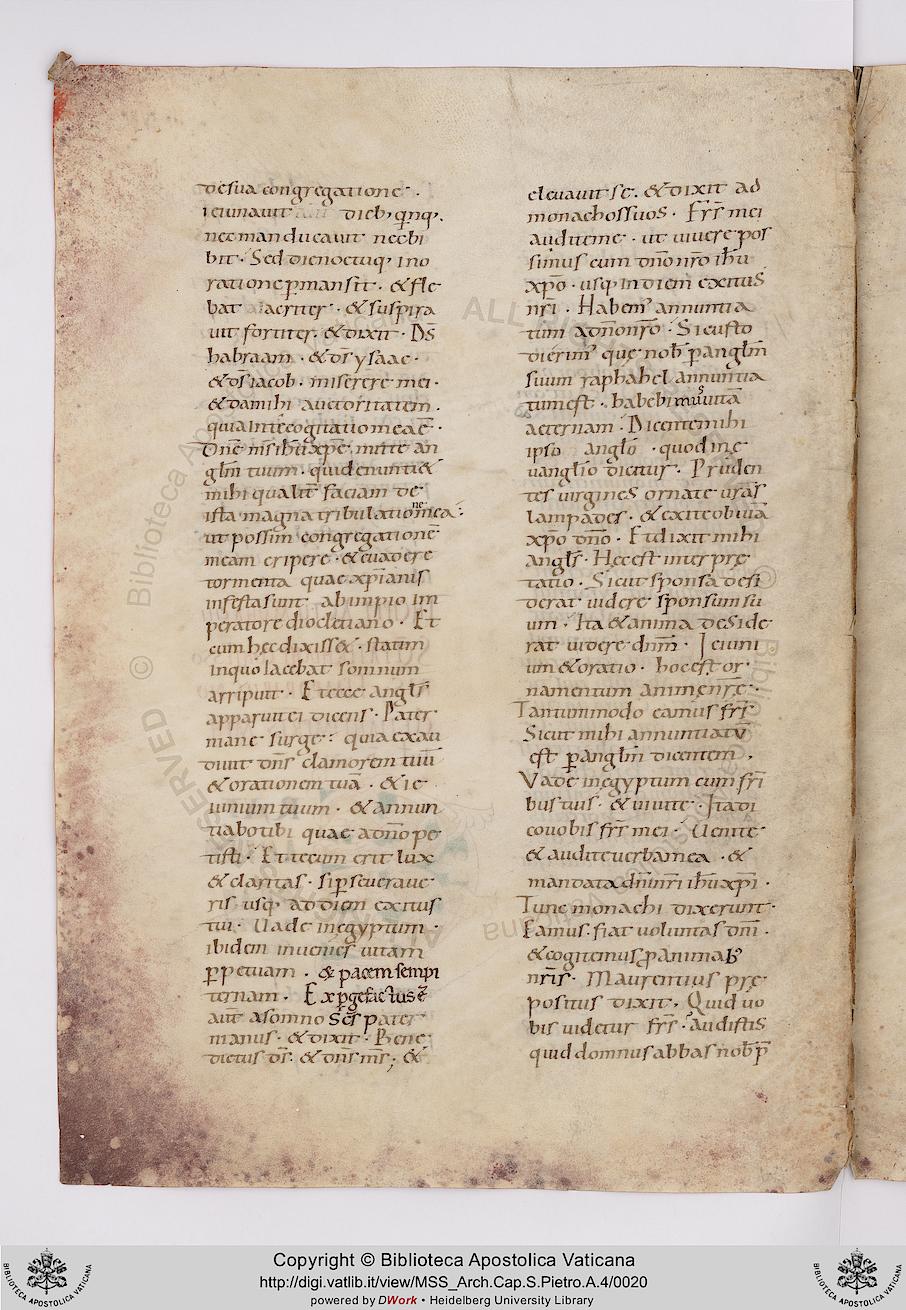 de sua congregatione ·
ieiunauit dieb; q̄nq;.
nec manducauit nec bi
bit · Sed die noctuq; in o
ratione ꝑmansit · & fle
bat acriter · & suspira
uit fortiter · & dixit · Ds̄
habraam · & ds̄ ysaac ·
& ds̄ iacob · miserere mei ·
& da mihi auctoritatem ·
quia in te cogitatio mea ē ·
Dn̄e ms̄ ihū xp̄e, mitte an
gl̄m tuum · qui denuntiet
mihi qualit̄ faciam de
ista magna tribulatione mea ·
ut possim congregationē
meam eripere · & euadere
tormenta quae xp̄ianis
infesta sunt ab impio im
peratore diocletiano · Et
cum hec dixiss& · statim
in quo iacebat somnum
arripuit · Et ecce angl̄s
apparuit ei dicens · Pater
mane surge · quia exau
diuit dn̄s clamorem tuū
& orationem tuā · & ie
iunium tuum · & annun
tiabo tibi quae a dn̄o pe
tisti · Et tecum erit lux
& claritas · si ꝑseueraue
ris usq; ad diem exitus
tui · Uade in egyptum ·
ibidem inuenies uitam
ꝑpetuam · & pacem sempi
ternam · Expgefactus ē
aut̄ a somno sc̄s pater
manus · & dixit · Bene
dictus ds̄ · & dn̄s ms̄ ; &
eleuauit se · & dixit ad
monachos suos · Fr̄s mei
audite me · ut uiuere pos
simus cum dn̄o nr̄o ihū
xp̄o · usq; in diem exitus
nr̄i · Habem' annuntia
tum a dn̄o nr̄o · Si custo
dierim' que nob̄ ꝑ angl̄m
suum raphahel annuntia
tum est · habebimus uitā
aeternam · Dicente mihi
ipso anglō · quod in e
uanglīo dicitur · Pruden
tes uirgines ornate ur̄as
lampades · & exite obuiā
xp̄o dn̄o · Et dixit mihi
angl̄s · Hec est interpre
tatio · Sicut sponsa desi
derat uidere sponsum su
um · Ita & anima deside
rat uidere dn̄m · Ieiuni
um & oratio · hoc est or
namentum anime nr̄e ·
Tantummodo eamus fr̄s
Sicut mihi annuntiatū
est ꝑ angl̄m dicentem ·
Vade in egyptum cum fr̄i
bus tuis · & uiuite · Ita di
co uobis fr̄s mei · Uenite
& audite uerba mea · &
mandata dn̄i nr̄i ihū xp̄i ·
Tunc monachi dixerunt ·
Eamus · fiat uoluntas dn̄i ·
& cogitemus ꝑ animab;
nr̄is · Maurentius pre
positus dixit · Quid uo
bis uidetur fr̄s · audistis
quid domnus abbas nob̄ p̄
Copyright © Biblioteca Apostolica Vaticana
http://digi.vatlib.it/view/MSS_Arch.Cap.S.Pietro.A.4/0020
powered by DWork • Heidelberg University Library